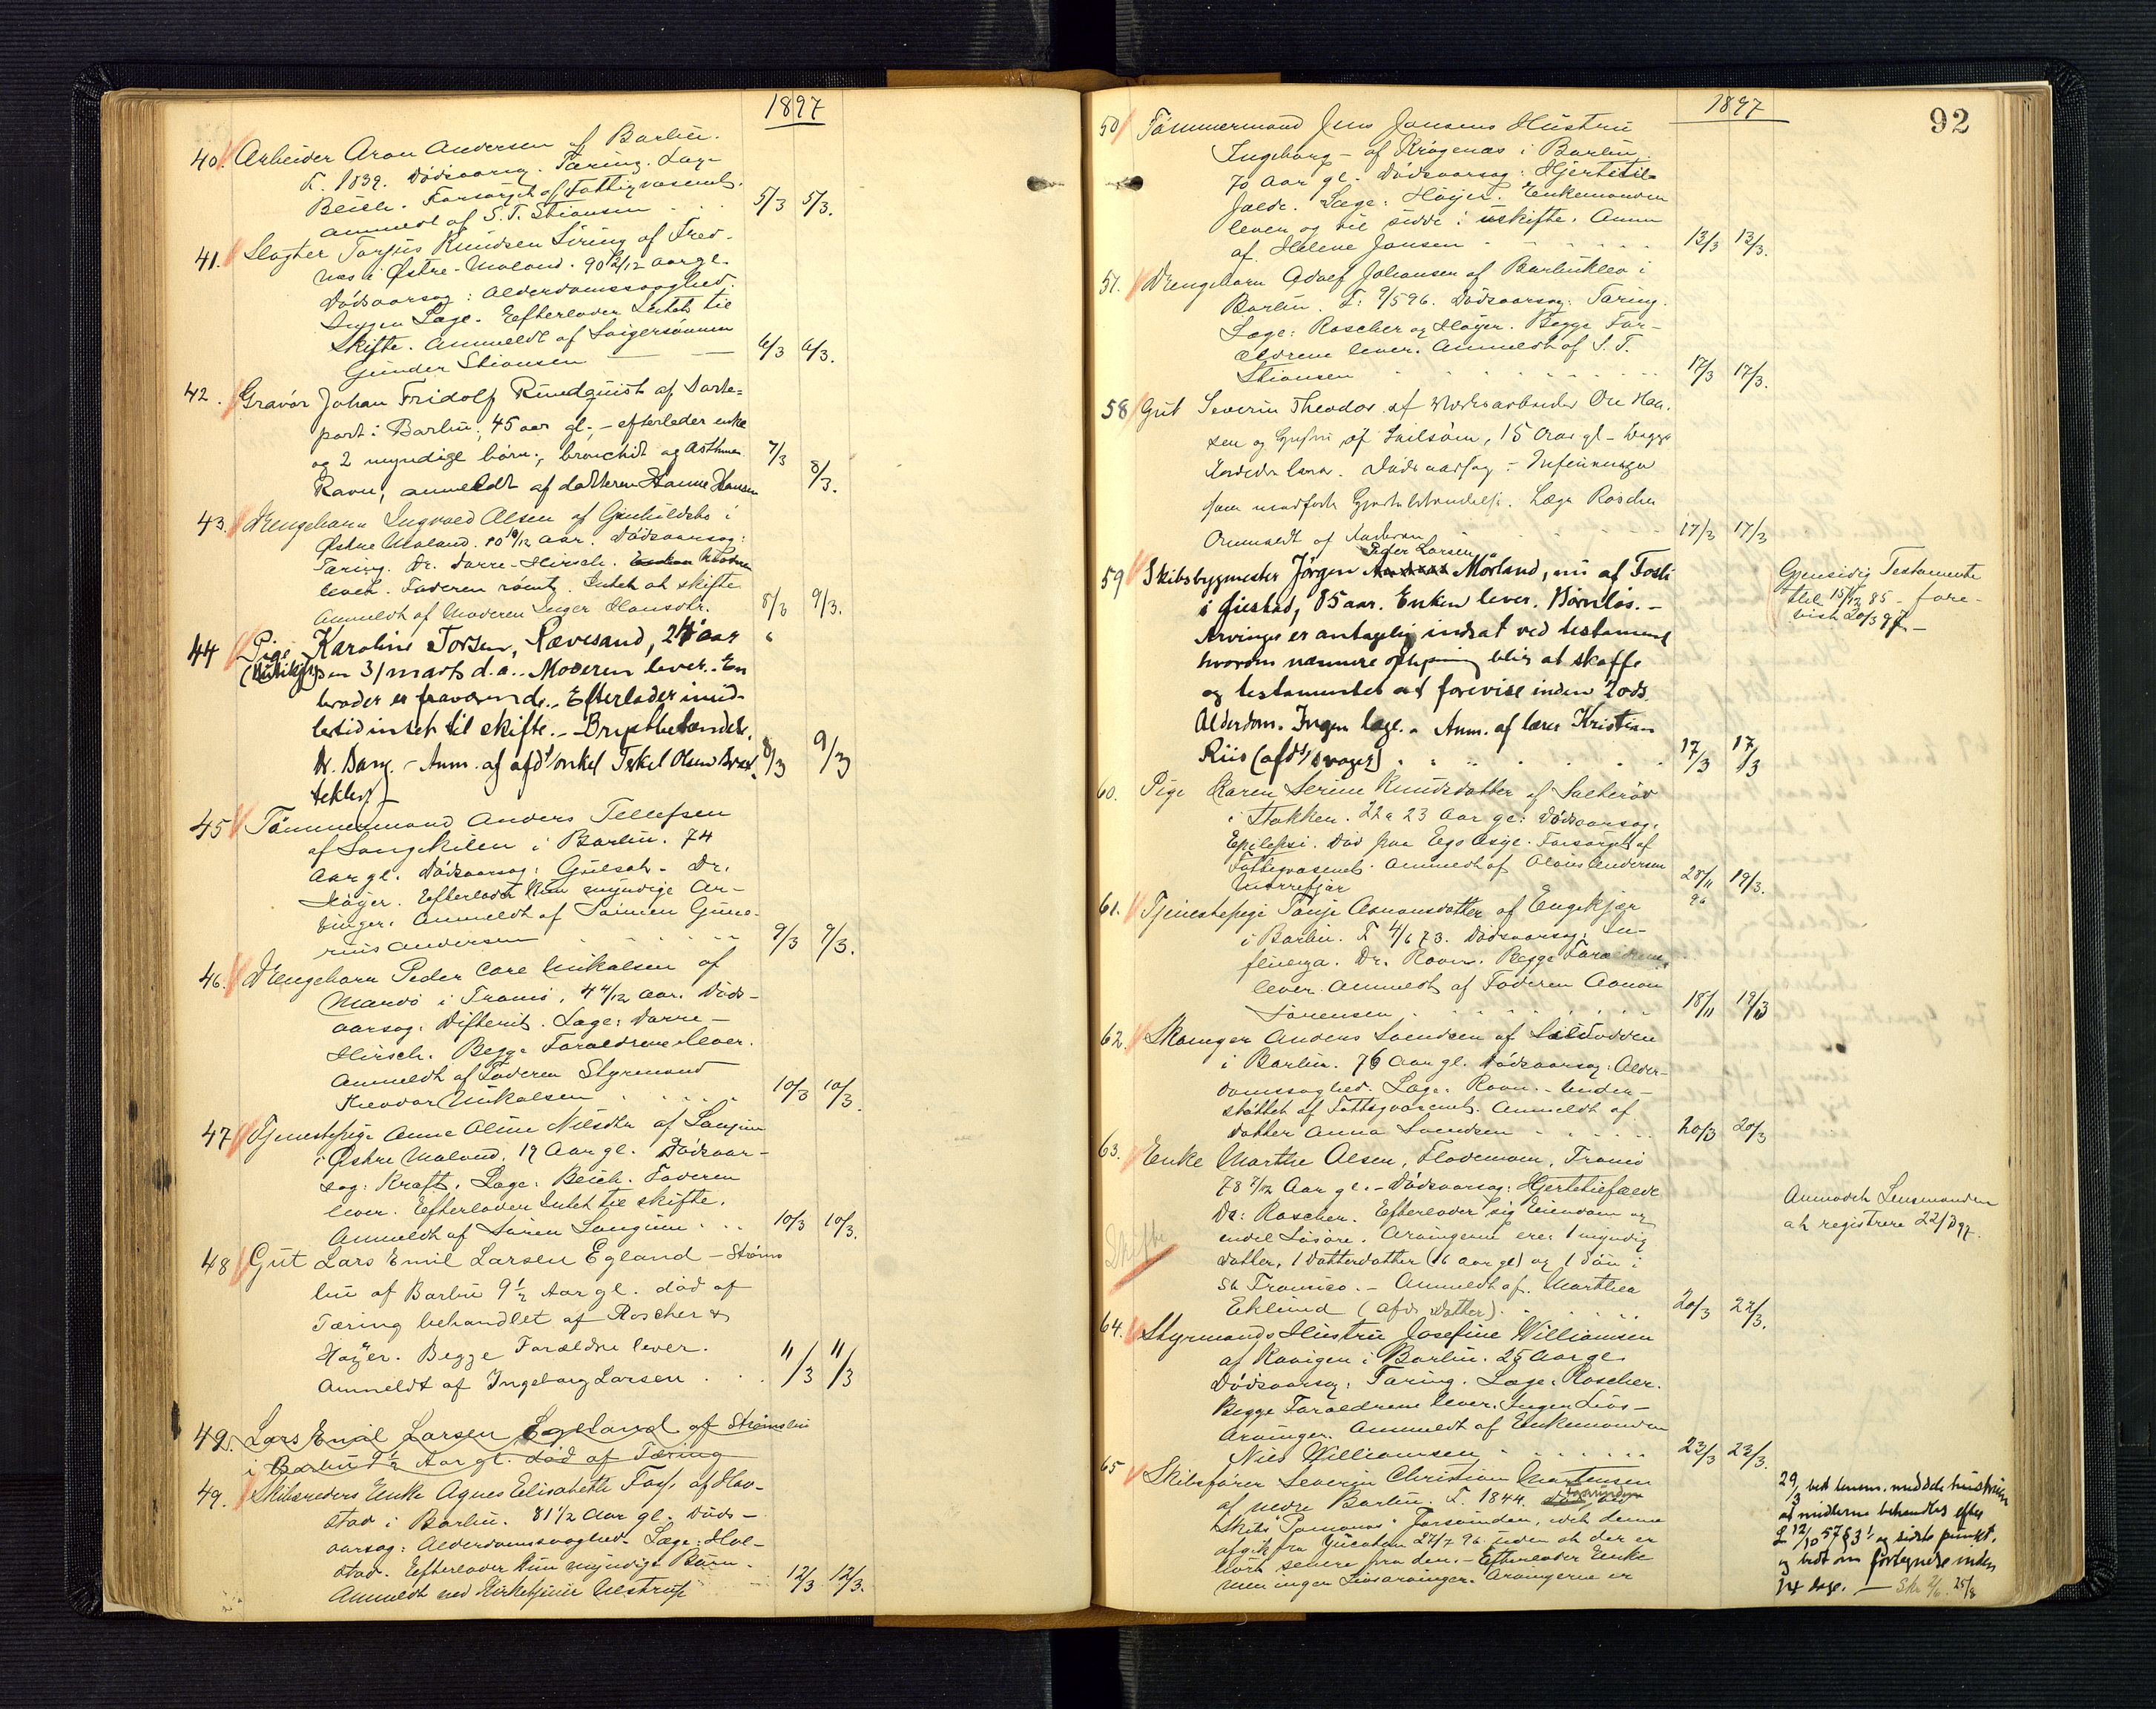 1897
40. Arbeider Aron Andersen af Barbu.
F. 1839. Dödsaarsag: Tæring. Læge
Beich. Forsörget af Fattigvæsenet.
Anmeldt af S. T. Stiansen . . . 5/3 5/3.
41. Slagter Torjus Knudsen Söring af Fred-
næs i Østre-Moland. 90 2/12 Aar gl.
Dödsaarsag: Alderdomssvaghed.
Ingen Læge. Efterlader Intet til
Skifte. Anmeldt af Svigersönnen
Gunder Stiansen — — 6/3 6/3.
42. Gravör Johan Fridolf Rundquist af
part i Barbu; 45 aar gl; - efterlader enke
og 2 myndige börn.; bronchit og Asthma
Ravn; anmeldt af datteren Hanna Hansen 7/3 8/3.
43. Drengebarn Ingvald Olsen af Gunhildsbo i
Østre Moland. 10 10/12 Aar. Dödsaarsag:
Tæring. Dr. Darre-Hirsch. Moderen
lever. Faderen römt. Intet at skifte
Anmeldt af Moderen Inger Hansdtr. 8/3 9/3.
44 Pige Karoline Torsen, Rævesand, 24 aar
Den 3/ marts d.a.. Moderen lever. En
broder er fraværende.. Efterlader imid-
lertid intet til skifte. - Brystbetændelse.
Dr. Dang. - Anm. af afd's onkel Terkel Olsen Bræk-
keklep — 8/3 9/3
45 Tömmermand Anders Tellefsen
af Songekilen i Barbu. 74
Aar gl. Dödsaarsag: Gulsot. Dr.
Höyer. Efterladt kun myndige Ar-
vinger. Anmeldt af Sönnen Gune-
rius Andersen . . . 9/3 9/3.
46. Drengebarn Peder Care Mikalsen af
Marvö i Tromö. 4 4/12 Aar. Döds-
aarsag: Difterit. Læge: Darre-
Hirsch. Begge Forældrene lever.
Anmeldt af Faderen Styrmand
Theodor Mikalsen . . . . 10/3 10/3.
47 Tjenestepige Anne Oline Nilsdtr af Longum
i Østre Moland. 19 Aar gl. Dödsaar-
sag: Kræft. Læge: Beich. Faderen
lever. Efterlader Intet til skifte.
Anmeldt af Sören Longum . . . 10/3 10/3.
48 Gut Lars Emil Larsen Egeland - Ströms
bu af Barbu 9 1/2 Aar gl. död af
Tæring behandlet af Roscher &
Höyer. Begge Forældre lever.
Anmeldt af Ingeborg Larsen . . . 11/3 11/3
49. Lars Emil Larsen Egeland af Strömsbu
i Barbu 9 1/2 Aar gl. död af Tæring
49. Skibsreders Enke Agnes Elisabeth Foss af Hav-
stad i Barbu. 81 1/2 Aar gl. Döds-
aarsag: Alderdomssvaghed. Læge: Hol-
stad. Efterlader kun myndige Börn.
Anmeldt ved Kirketjener Ulstrup 12/3 12/3.
1897
92
50 Tömmermand Jens Jensens Hustru
Ingeborg - af Krögenæs i Barbu
70 Aar gl. Dödsaarsag: Hjertetil-
fælde. Læge: Höyer. Enkemanden
lever og vil sidde i uskifte. Anm
af. Helene Jensen . . . . 13/3 13/3.
57. Drengebarn Adolf Johansen af Barbuklev i
Barbu. F: 9/5 96. Dödsaarsag: Tæring.
Læge: Roscher og Höyer. Begge For-
ældrene lever. Anmeldt af S. T.
Stiansen . . . . . . 17/3 17/3.
58 Gut Severin Theodor af Verksarbeider Ole Han-
sen og Hustru af, 15 Aar gl - begge
Forældre lever. Dödsaarsag - Influenza
som medförte Hjertebetændelse. Læge Roscher
Anmeldt af Naboen . . . 17/3 17/3
Peder Larsen
59 Skibsbygmester Jörgen Morland, nu af
i Giestad, 85 aar. Enken lever. Barnlös. -
Arvinger er antagelig indsat ved testament
hvorom nærmere oplysning blir at skaffe
og testamentet at forevise inden 2 ods.
Alderdom. Ingen læge. - Anm. af lærer Kristian
Riis (afd's svoger) . . . . . 17/3 17/3
Gjensidig Testamente
15/12 85 - fore-
vist 20/3 97 -
60. Pige Karen Serine Knudsdatter af Salteröd
i Stokken. 22 a 23 Aar gl: Dödsaarsag:
Epilepsi. Död paa Egs Asyl. Forsörget af
Fattigvæsenet. Anmeldt af Olaus Andersen
Morrefjær 28/11 96 19/3.
61. Tjenestepige Tonje Aanonsdatter af Engekjær
i Barbu. F 4/6 73. Dödsaarsag: In-
fluenza. Dr. Ravn. Begge Forældrene
lever. Anmeldt af Faderen Aanon
Sörensen . . . . . . 18/11 19/3
62. Skomager Anders Svendsen af Sildodden
i Barbu. 76 Aar gl. Dödsaarsag: Alder-
domssvaghed. Læge: Ravn. - Under-
støttet af Fattigvæsenet. Anmeldt af
Datter Anna Svendsen . . . . 20/3 20/3
63. Enke Marthe Olsen, Flademoen, Tromö
78 7/12 Aar gl. - Dödsaarsag: Hjertetilfælde
Dr: Roscher. Efterlader sig Eiendom og
endel Lösöre. Arvingerne erer 1 myndig
Datter, 1 Datterdatter (16 aar gl) og 1 Sön i
St Francisco. - Anmeldt af. Marthea
Eklund (afds Datter) . . . . 20/3 22/3.
Skifte
Anmodet Lensmanden
at registrere 22/3 97.
64. Styrmands Hustru Josefine Williamsen
af Ravigen i Barbu. 25 Aar gl.
Dödsaarsag: Tæring. Læge: Roscher.
Begge Forældrene lever. Ingen Livs-
Arvinger. Anmeldt af Enkemanden
Nils Williamsen . . . . . . 23/3 23/3.
65 Skibsförer Severin Christian Martensen
af nedre Barbu. F. 1844. Forsvunden
Skibet "Pomona". Forsvunden, idet denne
afgik fra Yucatan 27/7 96 uden at der er
hört senere fra den. - Efterlader Enke
men ingen Livsarvinger. Arvingerne er
29/3 bedt lensm. meddele hustruen
at midlerne behandles efter
L 12/10 57 § 3 1/ og sidste punkt.
og bedt om forkyndelse inden
14 dage. — Skr 2/6. 25/8